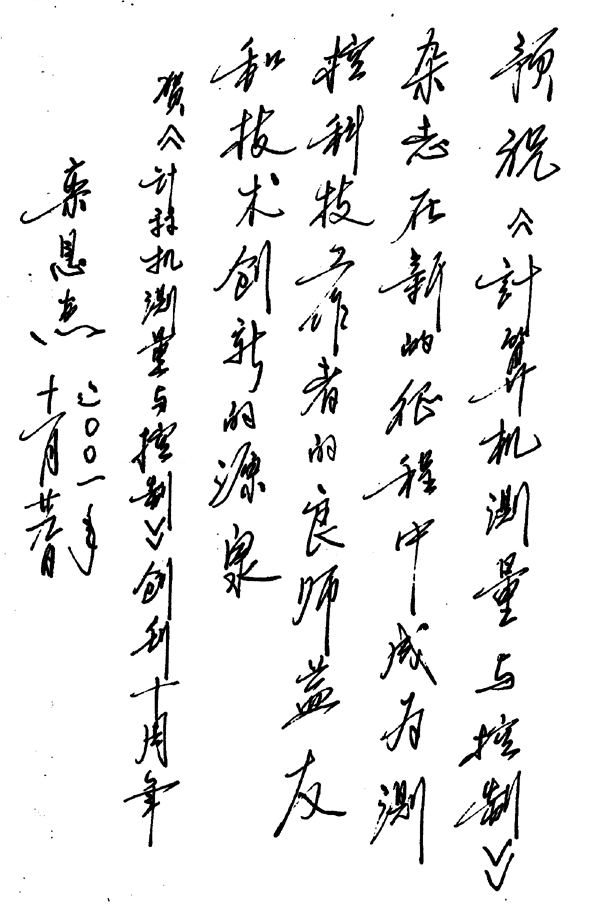 预祝《計算机测量与控制》
杂志在新的征程中成为测
控科技工作者的良师益友
和技术创新的源泉
贺《计算机测量与控制》创刊十周年
栾恩杰
二〇〇一年
十一月廿